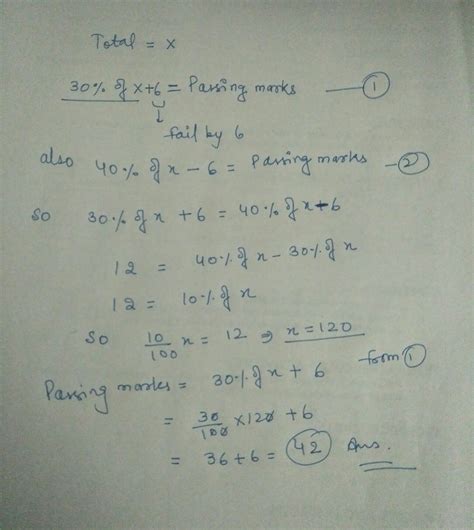 Total = x
30% of x + 6 = Passing marks — ①
↓
fail by 6
also 40% of x - 6 = Passing marks - ②
so 30% of x + 6 = 40% of x - 6
12 = 40% of x - 30% of x
12 = 10% of x
so 10/100 x = 12 ⇒ x = 120
Passing marks = 30% of x + 6 from ①
= 30/100 × 120 + 6
= 36 + 6 = 42 Ans.